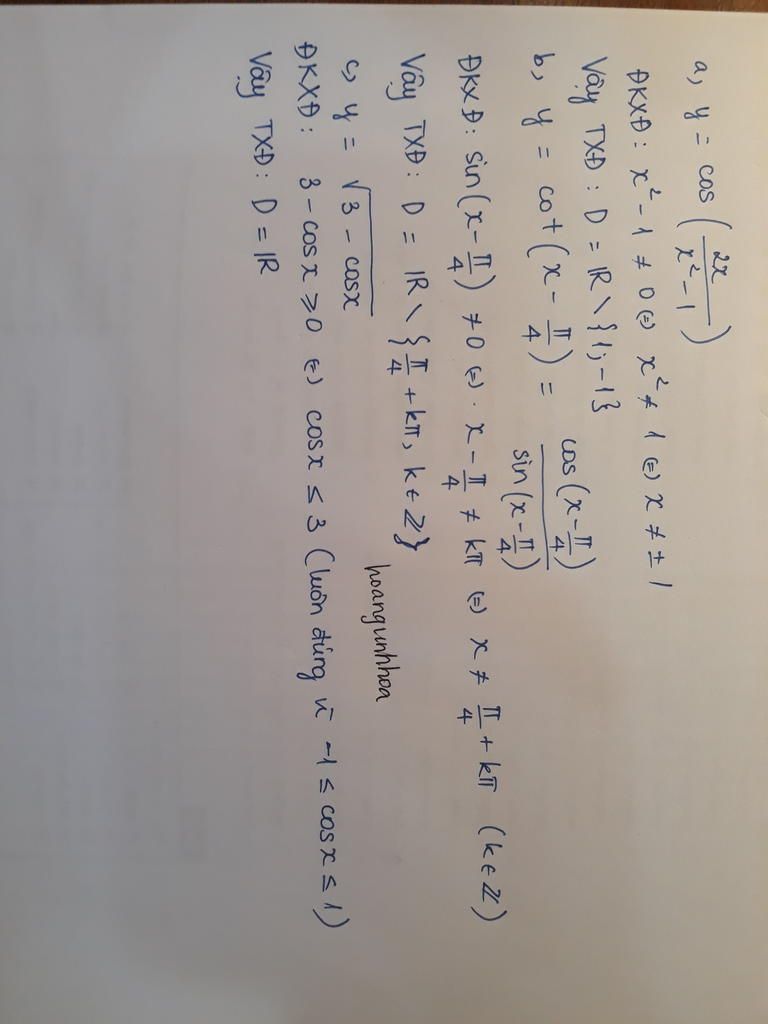 a, y = cos (2x / x² - 1)
ĐKXĐ: x² - 1 ≠ 0 (=) x² ≠ 1 (=) x ≠ ± 1
Vậy TXĐ: D = ℝ \ {1; -1}
b, y = cot (x - π/4) = cos(x - π/4) / sin(x - π/4)
ĐKXĐ: sin(x - π/4) ≠ 0 (=) · x - π/4 ≠ kπ (=) x ≠ π/4 + kπ (k ∈ ℤ)
Vậy TXĐ: D = ℝ \ {π/4 + kπ, k ∈ ℤ}
hoangunhhoa
c, y = √(3 - cosx)
ĐKXĐ: 3 - cosx ≥ 0 (=) cosx ≤ 3 (luôn đúng vì -1 ≤ cosx ≤ 1)
Vậy TXĐ: D = ℝ